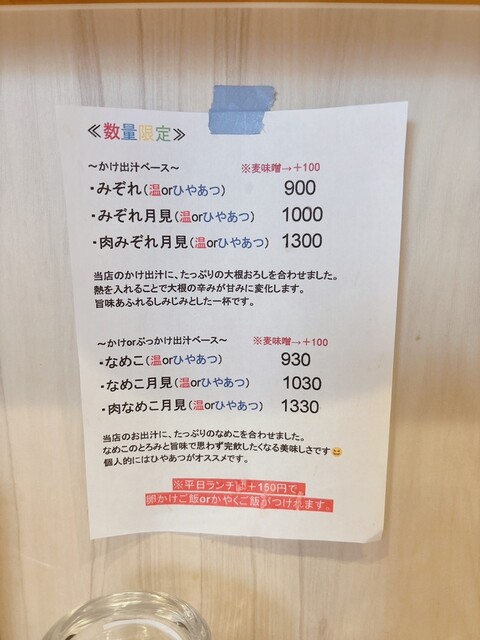 ≪数量限定≫
～かけ出汁ベース～ ※麦味噌→＋100
・みぞれ(温orひやあつ) 900
・みぞれ月見(温orひやあつ) 1000
・肉みぞれ月見(温orひやあつ) 1300
当店のかけ出汁に、たっぷりの大根おろしを合わせました。
熱を入れることで大根の辛みが甘みに変化します。
旨味あふれるしみじみとした一杯です。
～かけorぶっかけ出汁ベース～ ※麦味噌→＋100
・なめこ(温orひやあつ) 930
・なめこ月見(温orひやあつ) 1030
・肉なめこ月見(温orひやあつ) 1330
当店のお出汁に、たっぷりのなめこを合わせました。
なめこのとろみと旨味で思わず完飲したくなる美味しさです😄
個人的にはひやあつがオススメです。
※平日ランチは＋150円で、
卵かけご飯orかやくご飯がつけれます。